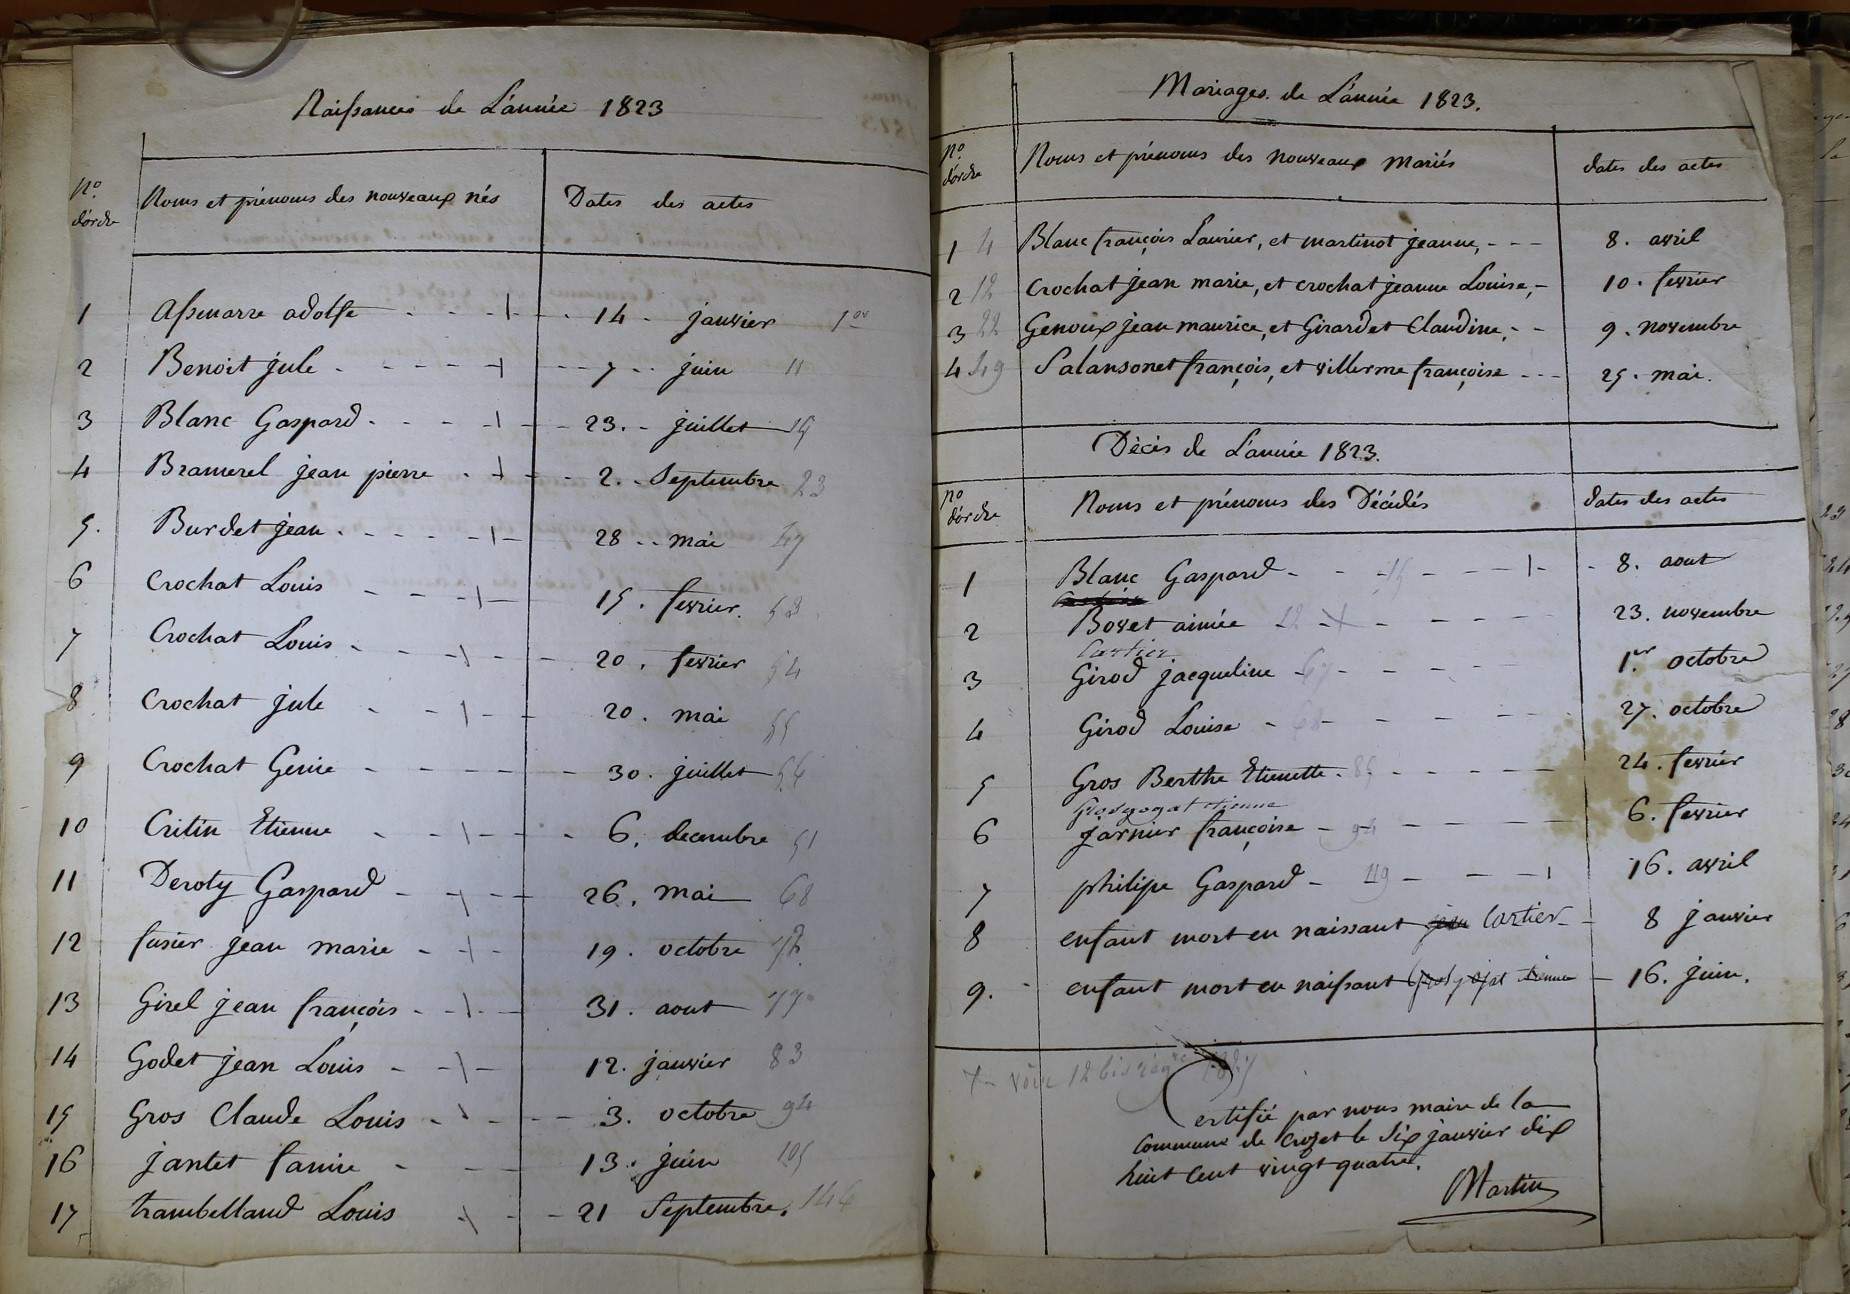 Naissances de L'année 1823
No d'ordre Noms et prénoms des nouveaux nés Dates des actes
1 Assenarre adolfe 14 janvier 1er
2 Benoit jule 7 juin 11
3 Blanc Gaspard 23 juillet 15
4 Bramerel jean pierre 2 Septembre 23
5. Burdet jean 28 mai 47
6 Crochat Louis 15. fevrier. 53
7 Crochat Louis 20. fevrier 54
8 Crochat jule 20. mai 55
9 Crochat Genie 30. juillet 56
10 Critin Etienne 6. decembre 51
11 Deroty Gaspard 26. mai 68
12 fusier jean marie 19. octobre 72
13 Girel jean françois 31. aout 77
14 Godet jean Louis 12. janvier 83
15 Gros Claude Louis 3. octobre 94
16 jantet fanie 13. juin 105
17 trambelland Louis 21 Septembre. 146
Mariages de L'année 1823.
No d'ordre Noms et prénoms des nouveaux Mariés dates des actes
1 4 Blanc françois Laurier, et martinot jeanne, 8. avril
2 12 Crochat jean marie, et crochat jeanne Louise, 10. fevrier
3 22 Genoux jean maurice, et Girardet Claudine, 9. novembre
4 49 Salansonet françois, et villerme françoise 25. mai.
Décès de L'année 1823.
No d'ordre Noms et prénoms des Décédés dates des actes
1 Blanc Gaspard 15 8. aout
2 Bovet aimée 22 23. novembre
Cartier
3 Girod jacqueline 67 1.er octobre
4 Girod Louise 68 27. octobre
5 Gros Berthe Etienette. 85 24. fevrier
Grosgogat etienne
6 jarnier françoise 94 6. fevrier
7 philipe Gaspard 119 16. avril
8 enfant mort en naissant jean Cartier 8 janvier
9. enfant mort en naissant Grosgojat Etienne 16. juin.
+ voir 12 bis
Certifié par nous maire de la
Commune de Crozet le Six janvier dix
huit Cent vingt quatre.
Martin